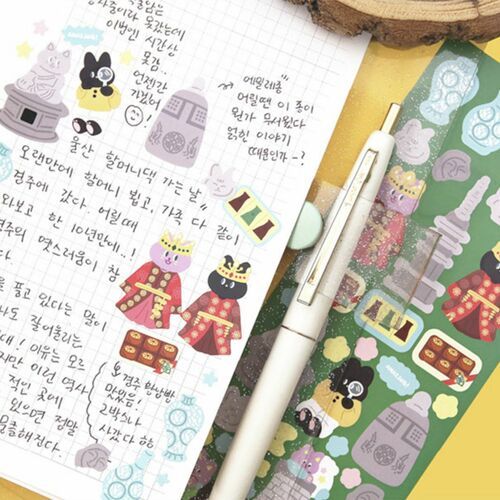 못갔는데
이번엔 시간상
못감..
언젠간
가있어
!
에밀레종
어릴땐 이 종이
뭔가 무서웠다
얽힌 이야기
때문인가-?
울산 할머니댁 가는 날
오랜만에 할머니 뵙고, 가족 다 같이
경주에 갔다. 어릴때
와보고 한 10년만에..!
경주의 옛스러움이 참
다.
를 품고 있다는 말이
나도 잘어울리는
대! 이유는 모르
지만 이런 역사
적인 곳에
있으면 정말
해진다.
경주 황남빵
맛있음!
2박스나
사갔다 하하